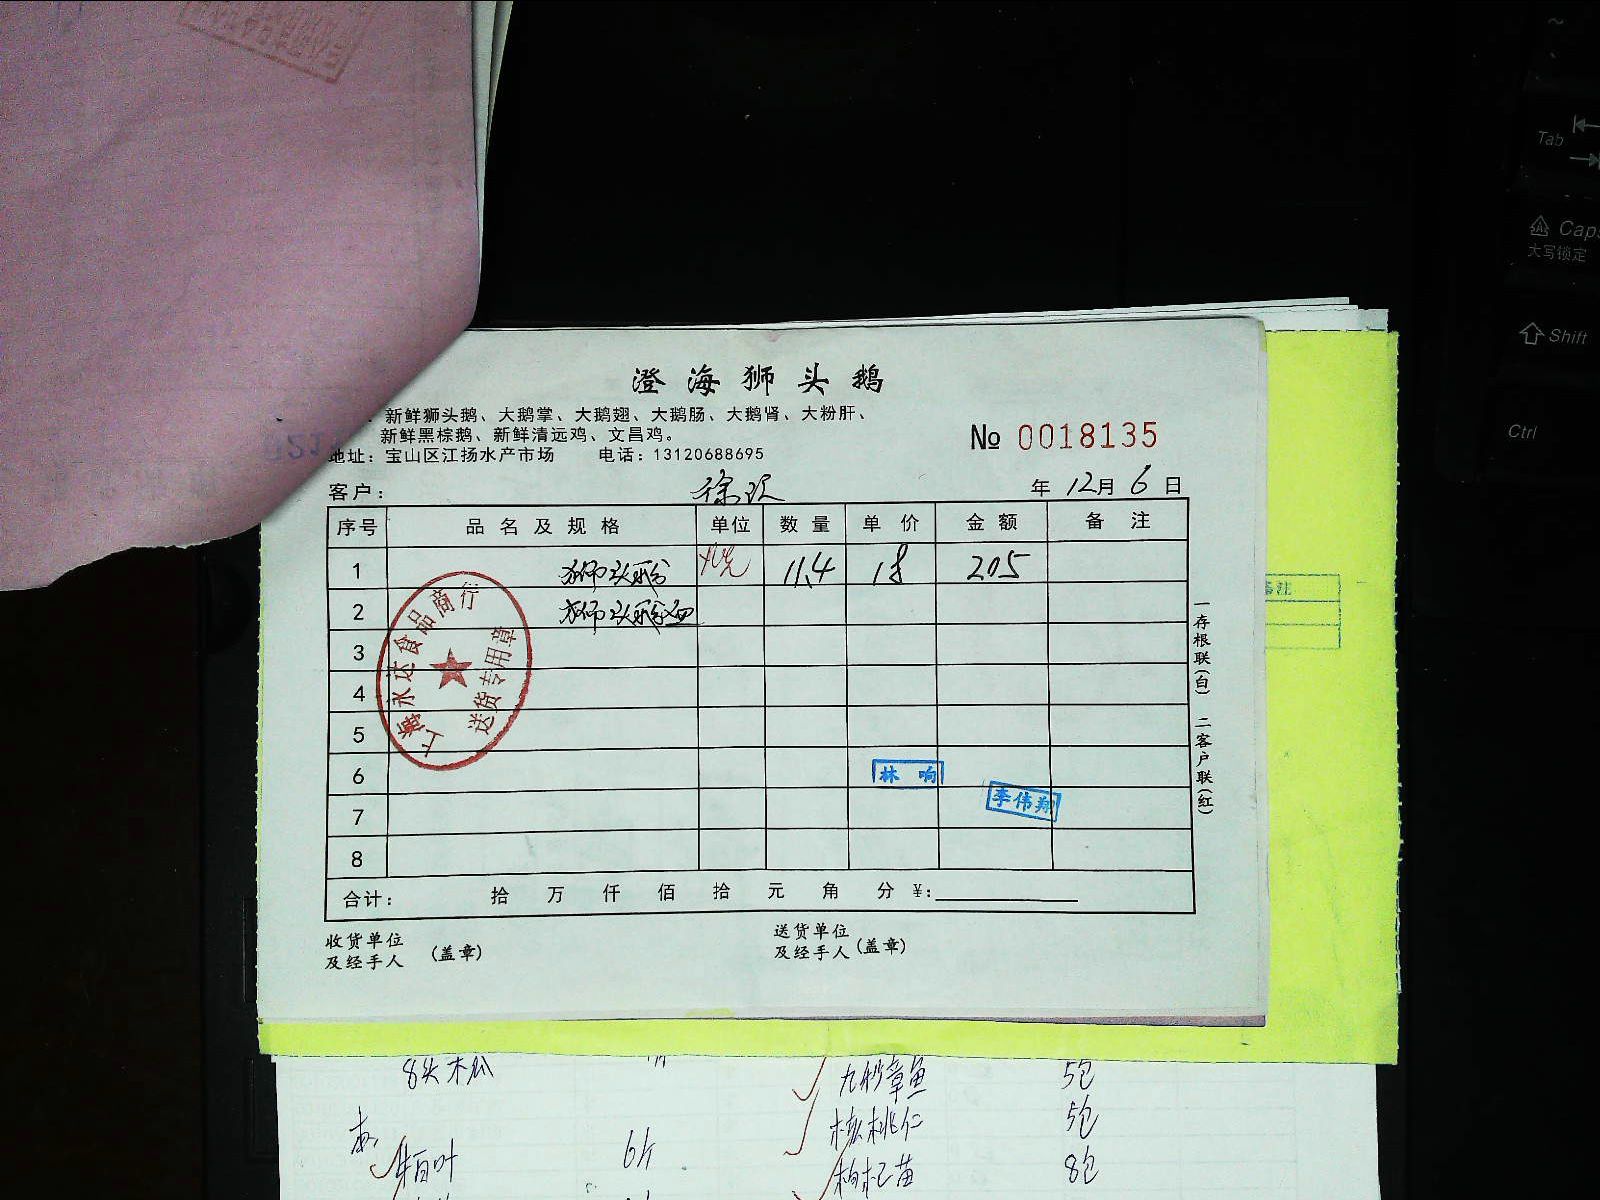 澄海狮头鹅
新鲜狮头鹅、大鹅掌、大鹅翅、大鹅肠、大鹅肾、大粉肝、
新鲜黑棕鹅、新鲜清远鸡、文昌鸡。
地址：宝山区江扬水产市场 电话：13120688695
№ 0018135
客户： 年 12月 6 日
序号 品名及规格 单位 数量 单价 金额 备注
1 狮头 11.4 18 205
2 狮头
3
4
5
6
7
8
上海永达食品商行
送货专用章
林响
李伟翔
合计： 拾 万 仟 佰 拾 元 角 分 ¥：
收货单位
及经手人 (盖章)
送货单位
及经手人 (盖章)
一存根联(白) 二客户联(红)
备注
8头木瓜
九秒章鱼 5包
核桃仁 5包
柏叶 6斤
枸杞苗 8包
Tab
Caps
大写锁定
Shift
Ctrl